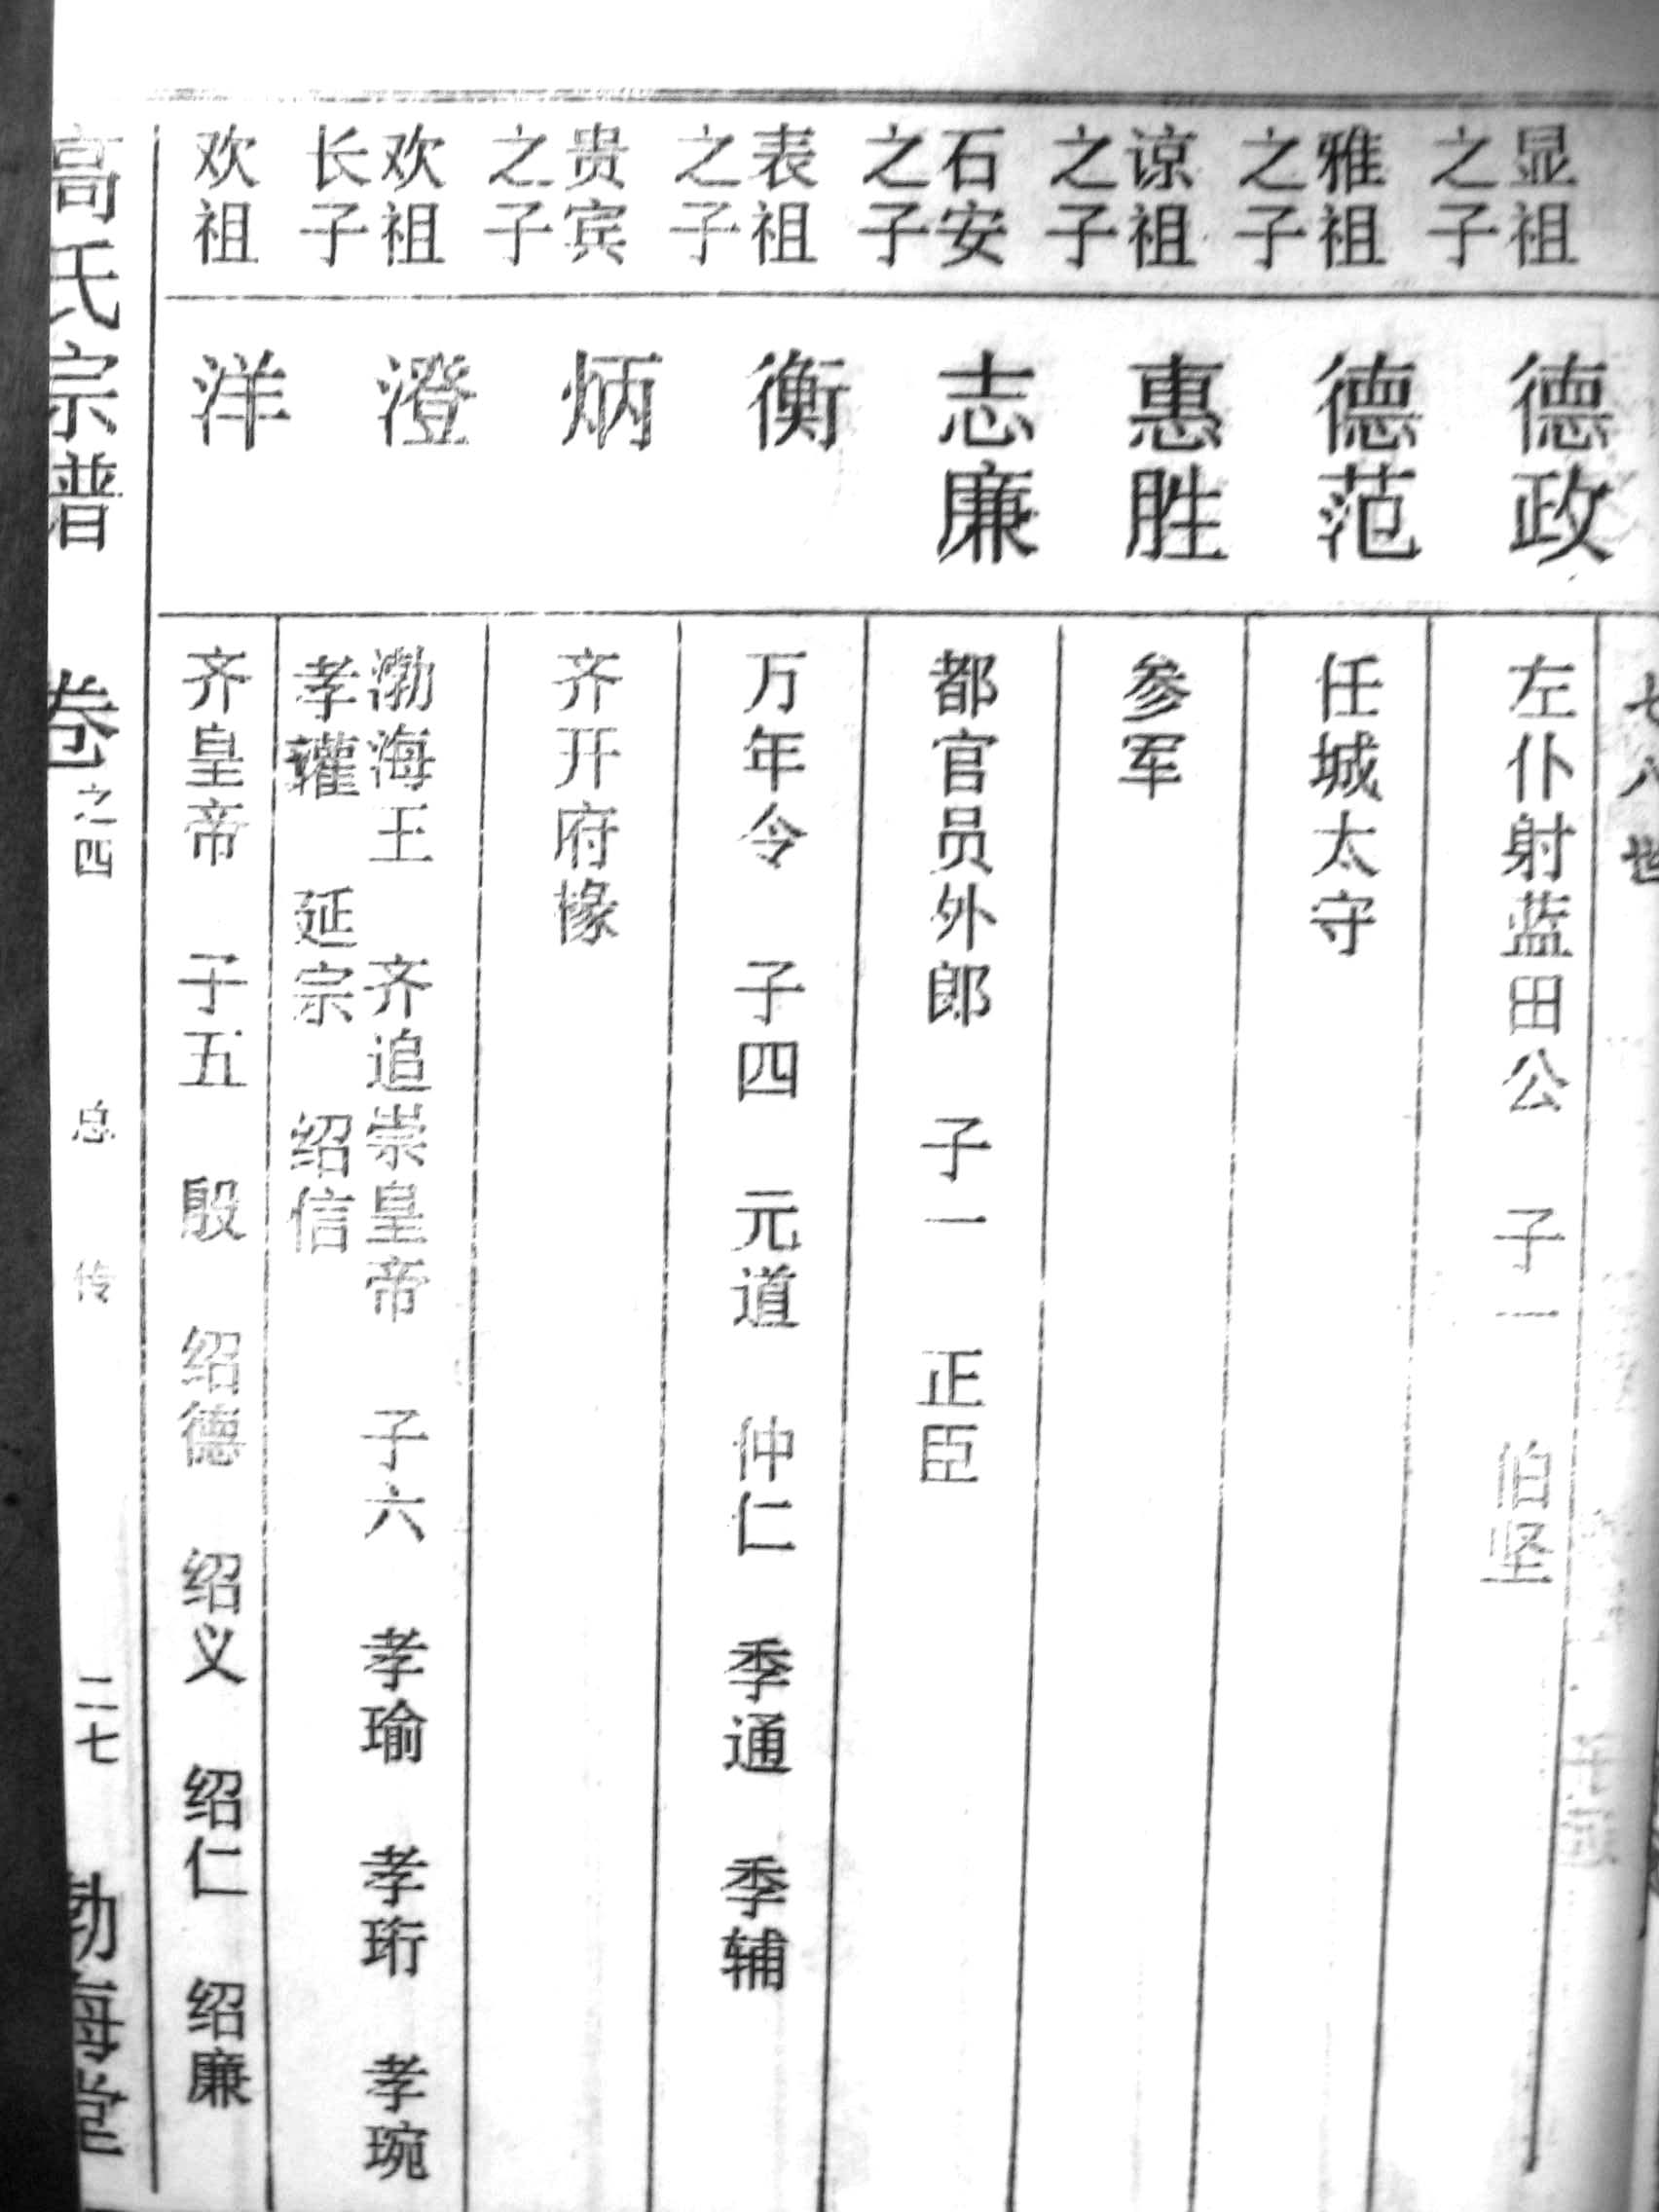 七八世
显祖
之子
德政
左仆射蓝田公 子一 伯坚
雅祖
之子
德范
任城太守
谅祖
之子
惠胜
参军
石安
之子
志廉
都官员外郎 子一 正臣
表祖
之子
衡
万年令 子四 元道 仲仁 季通 季辅
贵宾
之子
炳
齐开府椽
欢祖
长子
澄
渤海王 齐追崇皇帝 子六 孝瑜 孝珩 孝琬
孝瓘 延宗 绍信
欢祖
洋
齐皇帝 子五 殷 绍德 绍义 绍仁 绍廉
高氏宗谱 卷之四 总传 二七 勃海堂